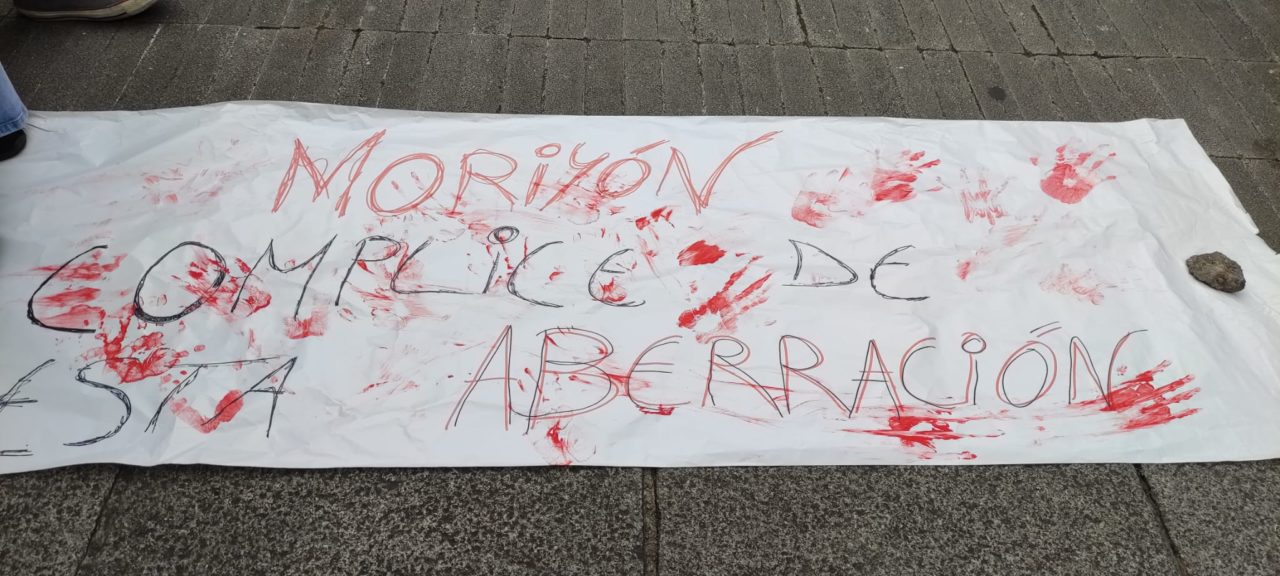 MORiYÓN
COMPLiCE DE
ESTA ABERRACiÓN